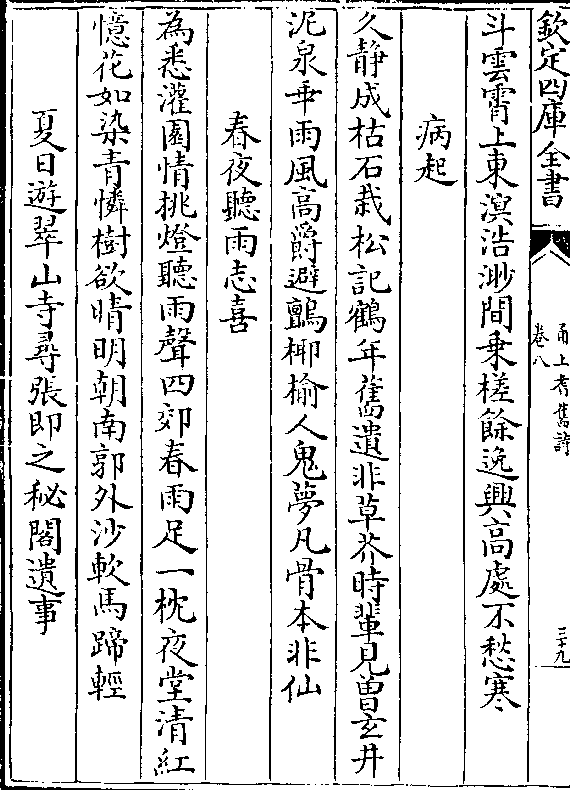 欽定四庫全書
甬上耆舊詩
卷八
三十九
斗雲霄上東溟浩渺間乗槎餘逸興高處不愁寒
病起
久静成枯石栽松記鶴年舊遺非草芥時輩見曽玄井
泥泉垂雨風高爵避鸇椰榆人鬼夢凡骨本非仙
春夜聽雨志喜
為悉灌園情挑燈聽雨聲四郊春雨足一枕夜堂清紅
憶花如染青憐樹欲晴明朝南郭外沙軟馬蹄輕
夏日遊翠山寺尋張即之秘閣遺事